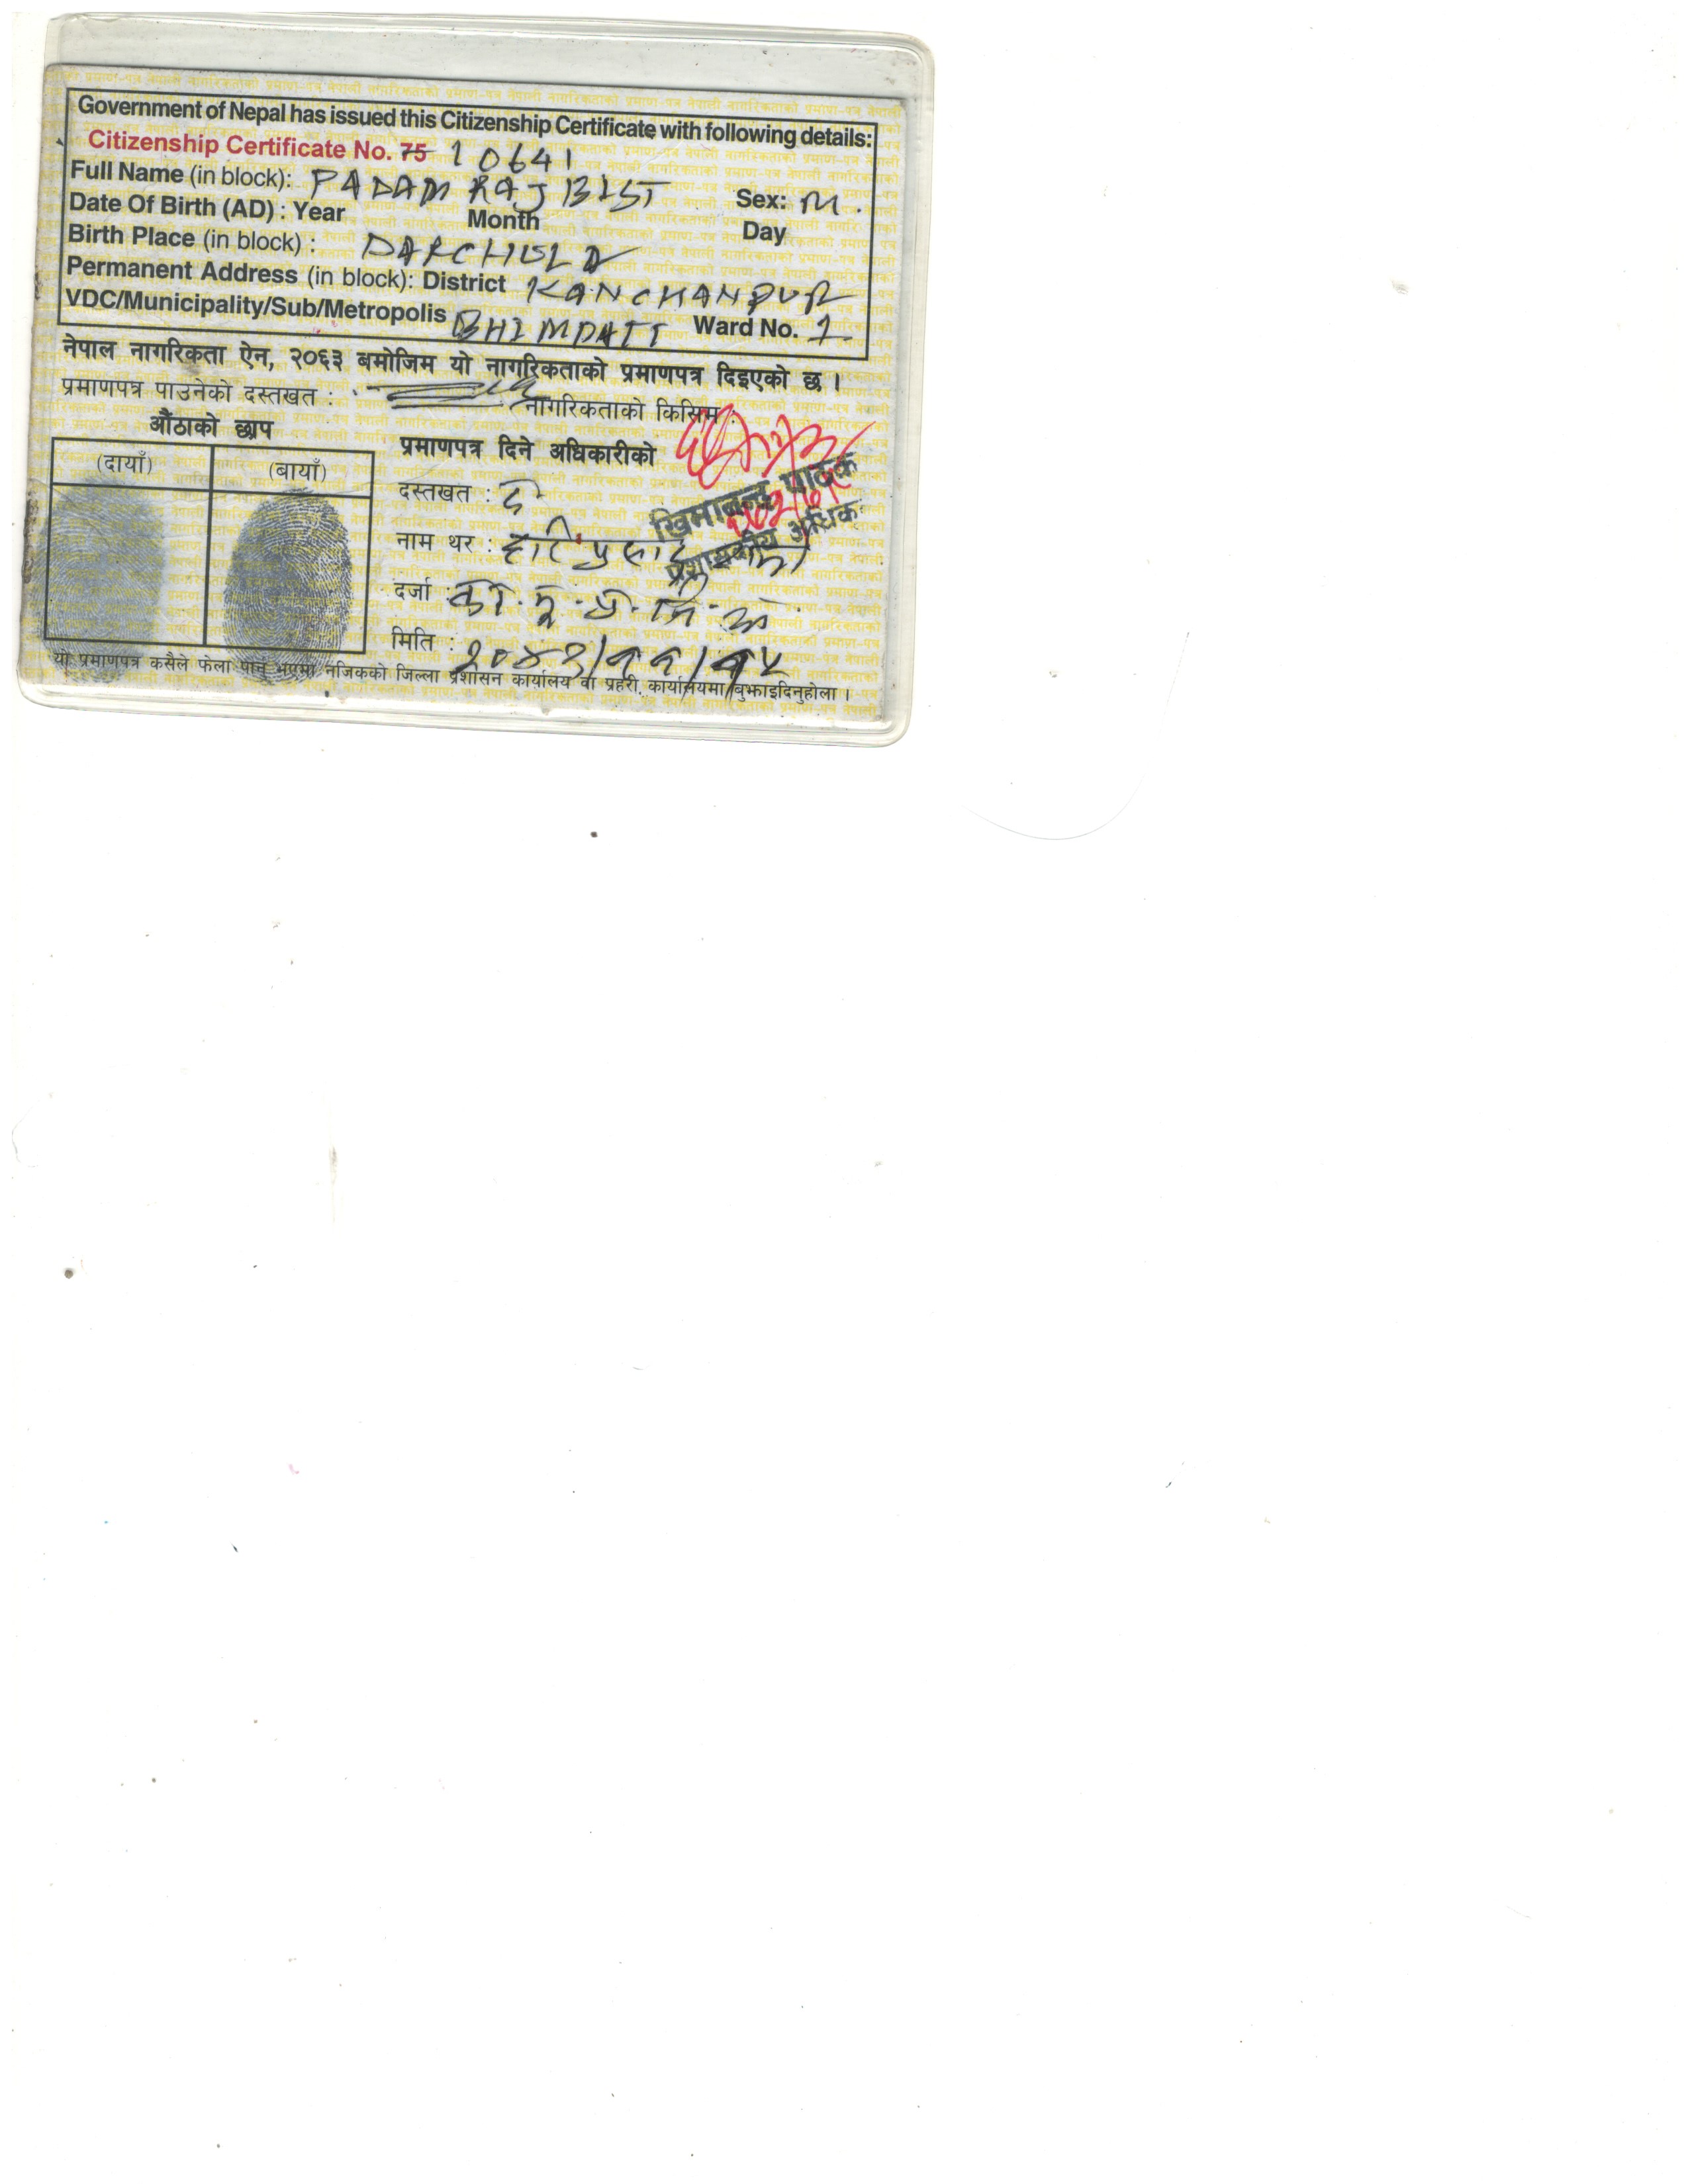 Government of Nepal has issued this Citizenship Certificate with following details:
Citizenship Certificate No. 75 10641
Full Name (in block): PADAM RAJ BIST Sex: M.
Date Of Birth (AD) : Year Month Day
Birth Place (in block) : DARCHULA
Permanent Address (in block): District KANCHANPUR
VDC/Municipality/Sub/Metropolis BHIMDATT Ward No. 1
नेपाल नागरिकता ऐन, २०६३ बमोजिम यो नागरिकताको प्रमाणपत्र दिइएको छ ।
प्रमाणपत्र पाउनेको दस्तखत : नागरिकताको किसिम :
औंठाको छाप
(दायाँ) (बायाँ)
प्रमाणपत्र दिने अधिकारीको
दस्तखत :
खिमानन्द पाठक
प्रशासकीय अधिकृ
नाम थर : हरि प्रसाद
दर्जा :
मिति :
यो प्रमाणपत्र कसैले फेला पानु भएमा नजिकको जिल्ला प्रशासन कार्यालय वा प्रहरी कार्यालयमा बुझाइदिनुहोला ।